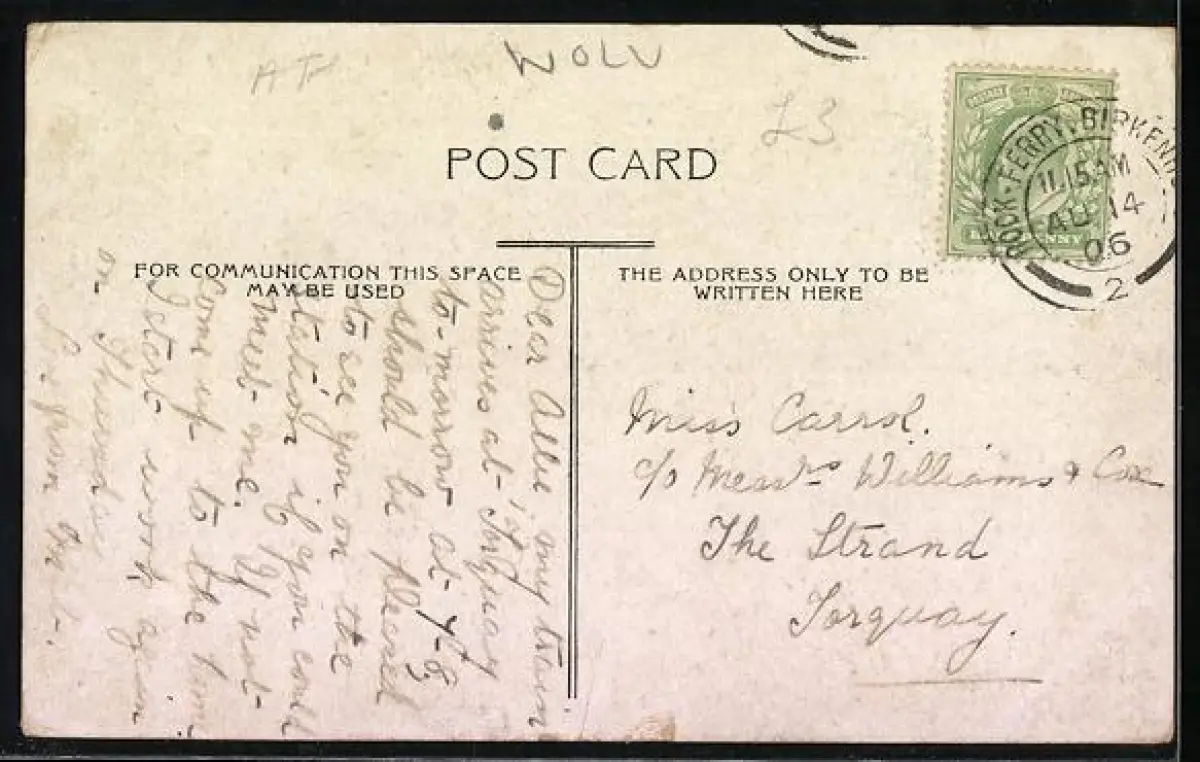 WOLV
£3
POST CARD
ROCK-FERRY. BIRKENH
11.15AM
AU 14
06
2
FOR COMMUNICATION THIS SPACE
MAY BE USED
THE ADDRESS ONLY TO BE
WRITTEN HERE
Dear Allie, my train
arrives at Torquay
to-morrow at
should be pleased
to see you on the
station if you could
meet me. If not
Come up to the
I start work again
on Thursday
from
Miss Carrol.
c/o Messrs Williams & Cox
The Strand
Torquay.